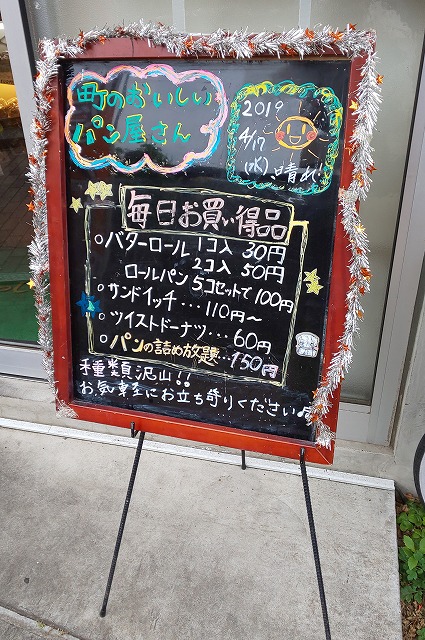 町のおいしい
パン屋さん
2019
4/17
(水) 晴れ
毎日お買い得品
○バターロール 1コ入 30円
2コ入 50円
ロールパン 5コセットで 100円
○サンドイッチ・・・110円〜
○ツイストドーナツ・・・60円
○パンの詰め放題・・・150円
種類沢山!!
お気軽にお立ち寄りください♪